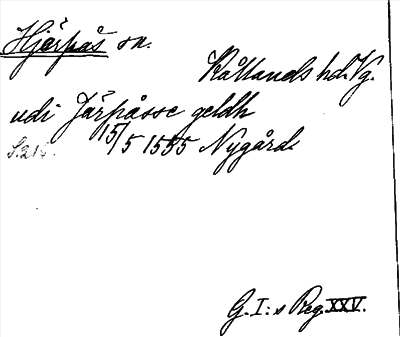 Hjärpås sn.
Kållands hd. Vg.
udi Järpåsse geldh
15/5 1535 Nygård.
G. I:s Reg. XXV.